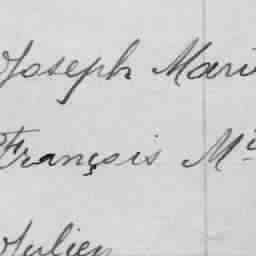 Joseph Marie
François M
Julien